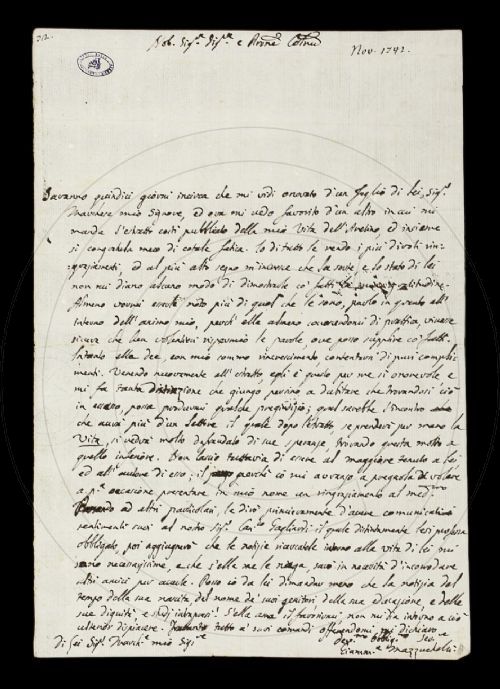 312.
Nob. Sig.re Sig.re e Prone
Nov. 1742.
Saranno quindici giorni incirca che mi vidi onorato d'un foglio di lei, Sig.r
mio Signore, ed ora mi vedo favorito d'un altro in cui mi
manda l'estratto costì pubblicato della mia Vita dell'Aretino ed insieme
si congratula meco di cotale fatica. Io di tutto le rendo i più divoti rin-
graziamenti, ed al più alto segno m'incresce che la sorte, e lo stato di lei
non mi diano alcuno modo di dimostrarle co' fatti la mia gratitudine.
Almeno vorrei esserle noto più di quel che le sono, parlo in quanto all'
interno dell'animo mio, perchè ella almeno conoscendomi di pratica, vivesse
sicura che ben volentieri risparmio le parole, ove posso supplire co' fatti.
Intanto ella dee, con mio sommo rincrescimento contentarsi di puri compli-
menti. Venendo nuovamente all'estratto, egli è questo per me sì onorevole e
mi fa tanta che giungo persino a dubitare che trovandosi ciò
in possa portarmi qualche pregiudizio; qual sarebbe l'incontro
che avrà più d'un Lettore il quale dopo l'estratto se prenderà per mano la
Vita, si vedrà molto defraudato di sue speranze, trovando questa molto a
quello inferiore. Non lascio tuttavia di essere al maggiore tenuto a Lei
ed all'autore di esso; il perchè io mi avanzo a pregarla di volere
a p.a occasione presentare in mio nome un ringraziamento al med.mo
ad altri particolari, le dirò primieramente d'avere comunicati
sentimenti suoi al nostro Sig. Can.co Gagliardi il quale distintamente le si professa
obbligato, poi aggiugnerò che le notizie ricercatele intorno alla vita di lei mi
sono necessarissime, e che s'ella me le niega, sarò in necessità d'incomodare
altri amici per averle. Poco io da lei dimando meno che la notizia del
tempo della sua nascita del nome de' suoi genitori della sua educazione, e delle
sue dignità, e studj intrapresi. S'ella ama il favorirmi, non mi dia intorno a ciò
ulterior dispiacere. tutto a' suoi comandi offerendomi, mi dichiaro
di Lei Sig.r March.e mio Sig.re
Dev.mo Obblig.mo Ser.e
Giamm.a Mazzuchelli